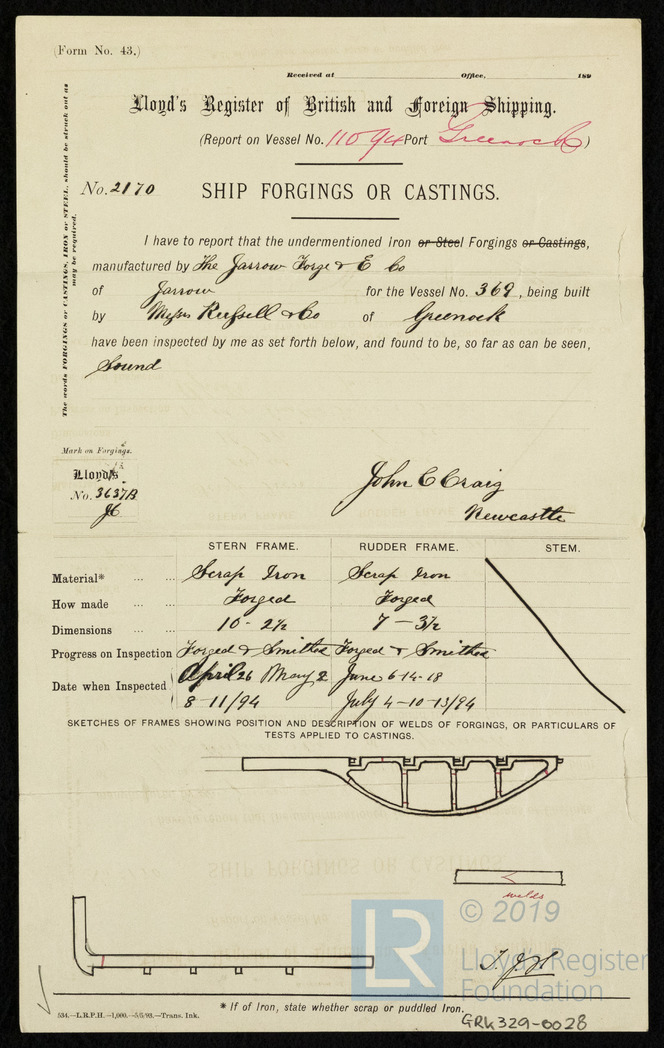 (Form No. 43.)
Received at Office, 189
Lloyd's Register of British and Foreign Shipping.
(Report on Vessel No. 11094 Port Greenock)
The words FORGINGS or CASTINGS, IRON or STEEL, should be struck out as
may be required.
No. 2170 SHIP FORGINGS OR CASTINGS.
I have to report that the undermentioned Iron or Steel Forgings or Castings,
manufactured by The Jarrow Forge & E Co
of Jarrow for the Vessel No. 369, being built
by Messrs Russell & Co of Greenock
have been inspected by me as set forth below, and found to be, so far as can be seen,
Sound
Mark on Forgings.
Lloyd's
No. 3637B
JC
John C Craig
Newcastle
STERN FRAME. RUDDER FRAME. STEM.
Material* ... ... Scrap Iron Scrap Iron
How made ... ... Forged Forged
Dimensions ... ... 10 - 2½ 7 - 3½
Progress on Inspection Forged & Smithed Forged & Smithed
Date when Inspected April 26 May 2 June 6-14-18
8-11/94 July 4-10-13/94
SKETCHES OF FRAMES SHOWING POSITION AND DESCRIPTION OF WELDS OF FORGINGS, OR PARTICULARS OF
TESTS APPLIED TO CASTINGS.
welds
LR © 2019
Lloyd's Register
Foundation
* If of Iron, state whether scrap or puddled Iron.
534.—L.R.P.H.—1,000.—5/5/93.—Trans. Ink.
GRK329-0028